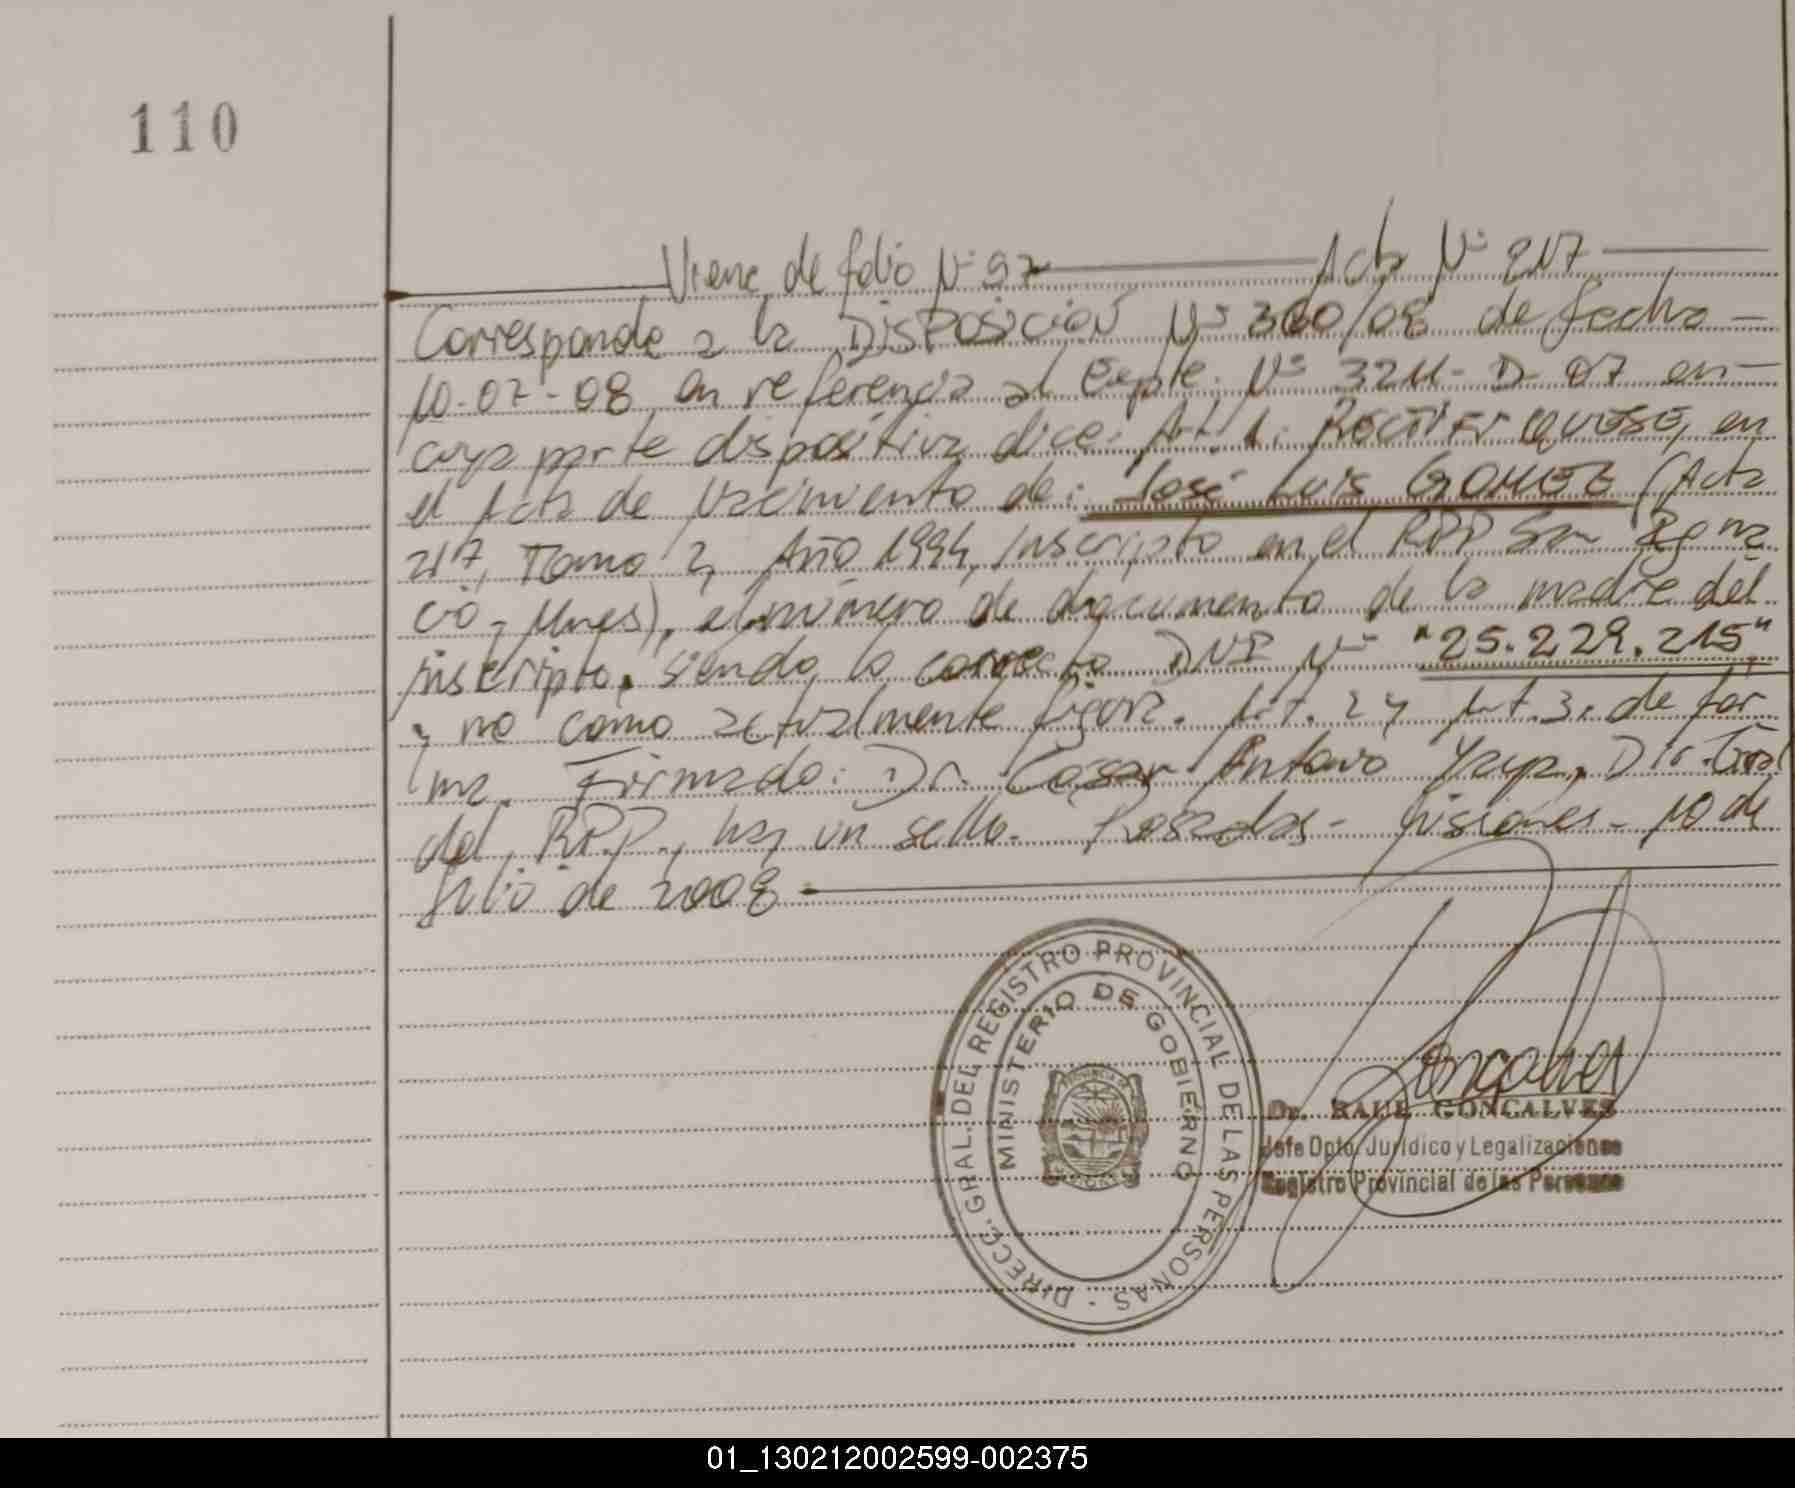 110
Viene de folio Nº 97 Acta Nº 217
Corresponde a la DISPOSICIÓN Nº 360/08 de fecha
10-07-08 en referencia al Expte. Nº 3211-D-07 en
cuya parte dispositiva dice: Art. 1: RECTIFIQUESE, en
el Acta de Nacimiento de: José Luis GOMEZ (Acta
217, Tomo 2, Año 1994, Inscripto en el RPP San Igna
cio - Mnes), el número de documento de la madre del
inscripto, siendo lo correcto DNI Nº "25.229.215"
y no como actualmente figura. Art. 2 y Art. 3. de for
ma. Firmado: Dr. Cesar Antonio Yaya, Dir. Gral
del RPP, hay un sello. Posadas - Misiones - 10 de
Julio de 2008
DIRECC. GRAL. DEL REGISTRO PROVINCIAL DE LAS PERSONAS -
MINISTERIO DE GOBIERNO
PROVINCIA DE
MISIONES
Goncalves
Dr. RAUL GONCALVES
Jefe Dpto. Jurídico y Legalizaciones
Registro Provincial de las Personas
01_130212002599-002375